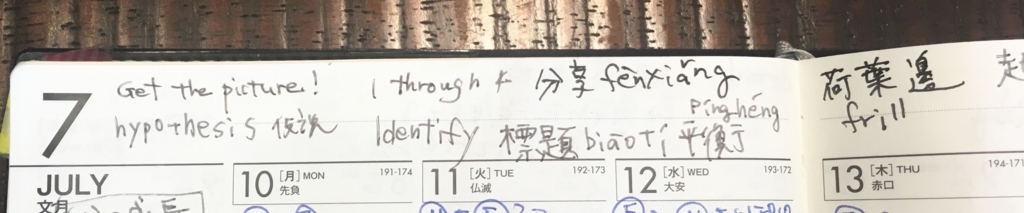 7
Get the picture!
hypothesis 仮説
1 through 4 分享 fēnxiǎng
Identify 標題 biāotí 平衡 pínghéng
荷葉邊
frill
JULY
文月
10 [月] MON 191-174
先負
11 [火] TUE 192-173
仏滅
12 [水] WED 193-172
大安
13 [木] THU 194-171
赤口